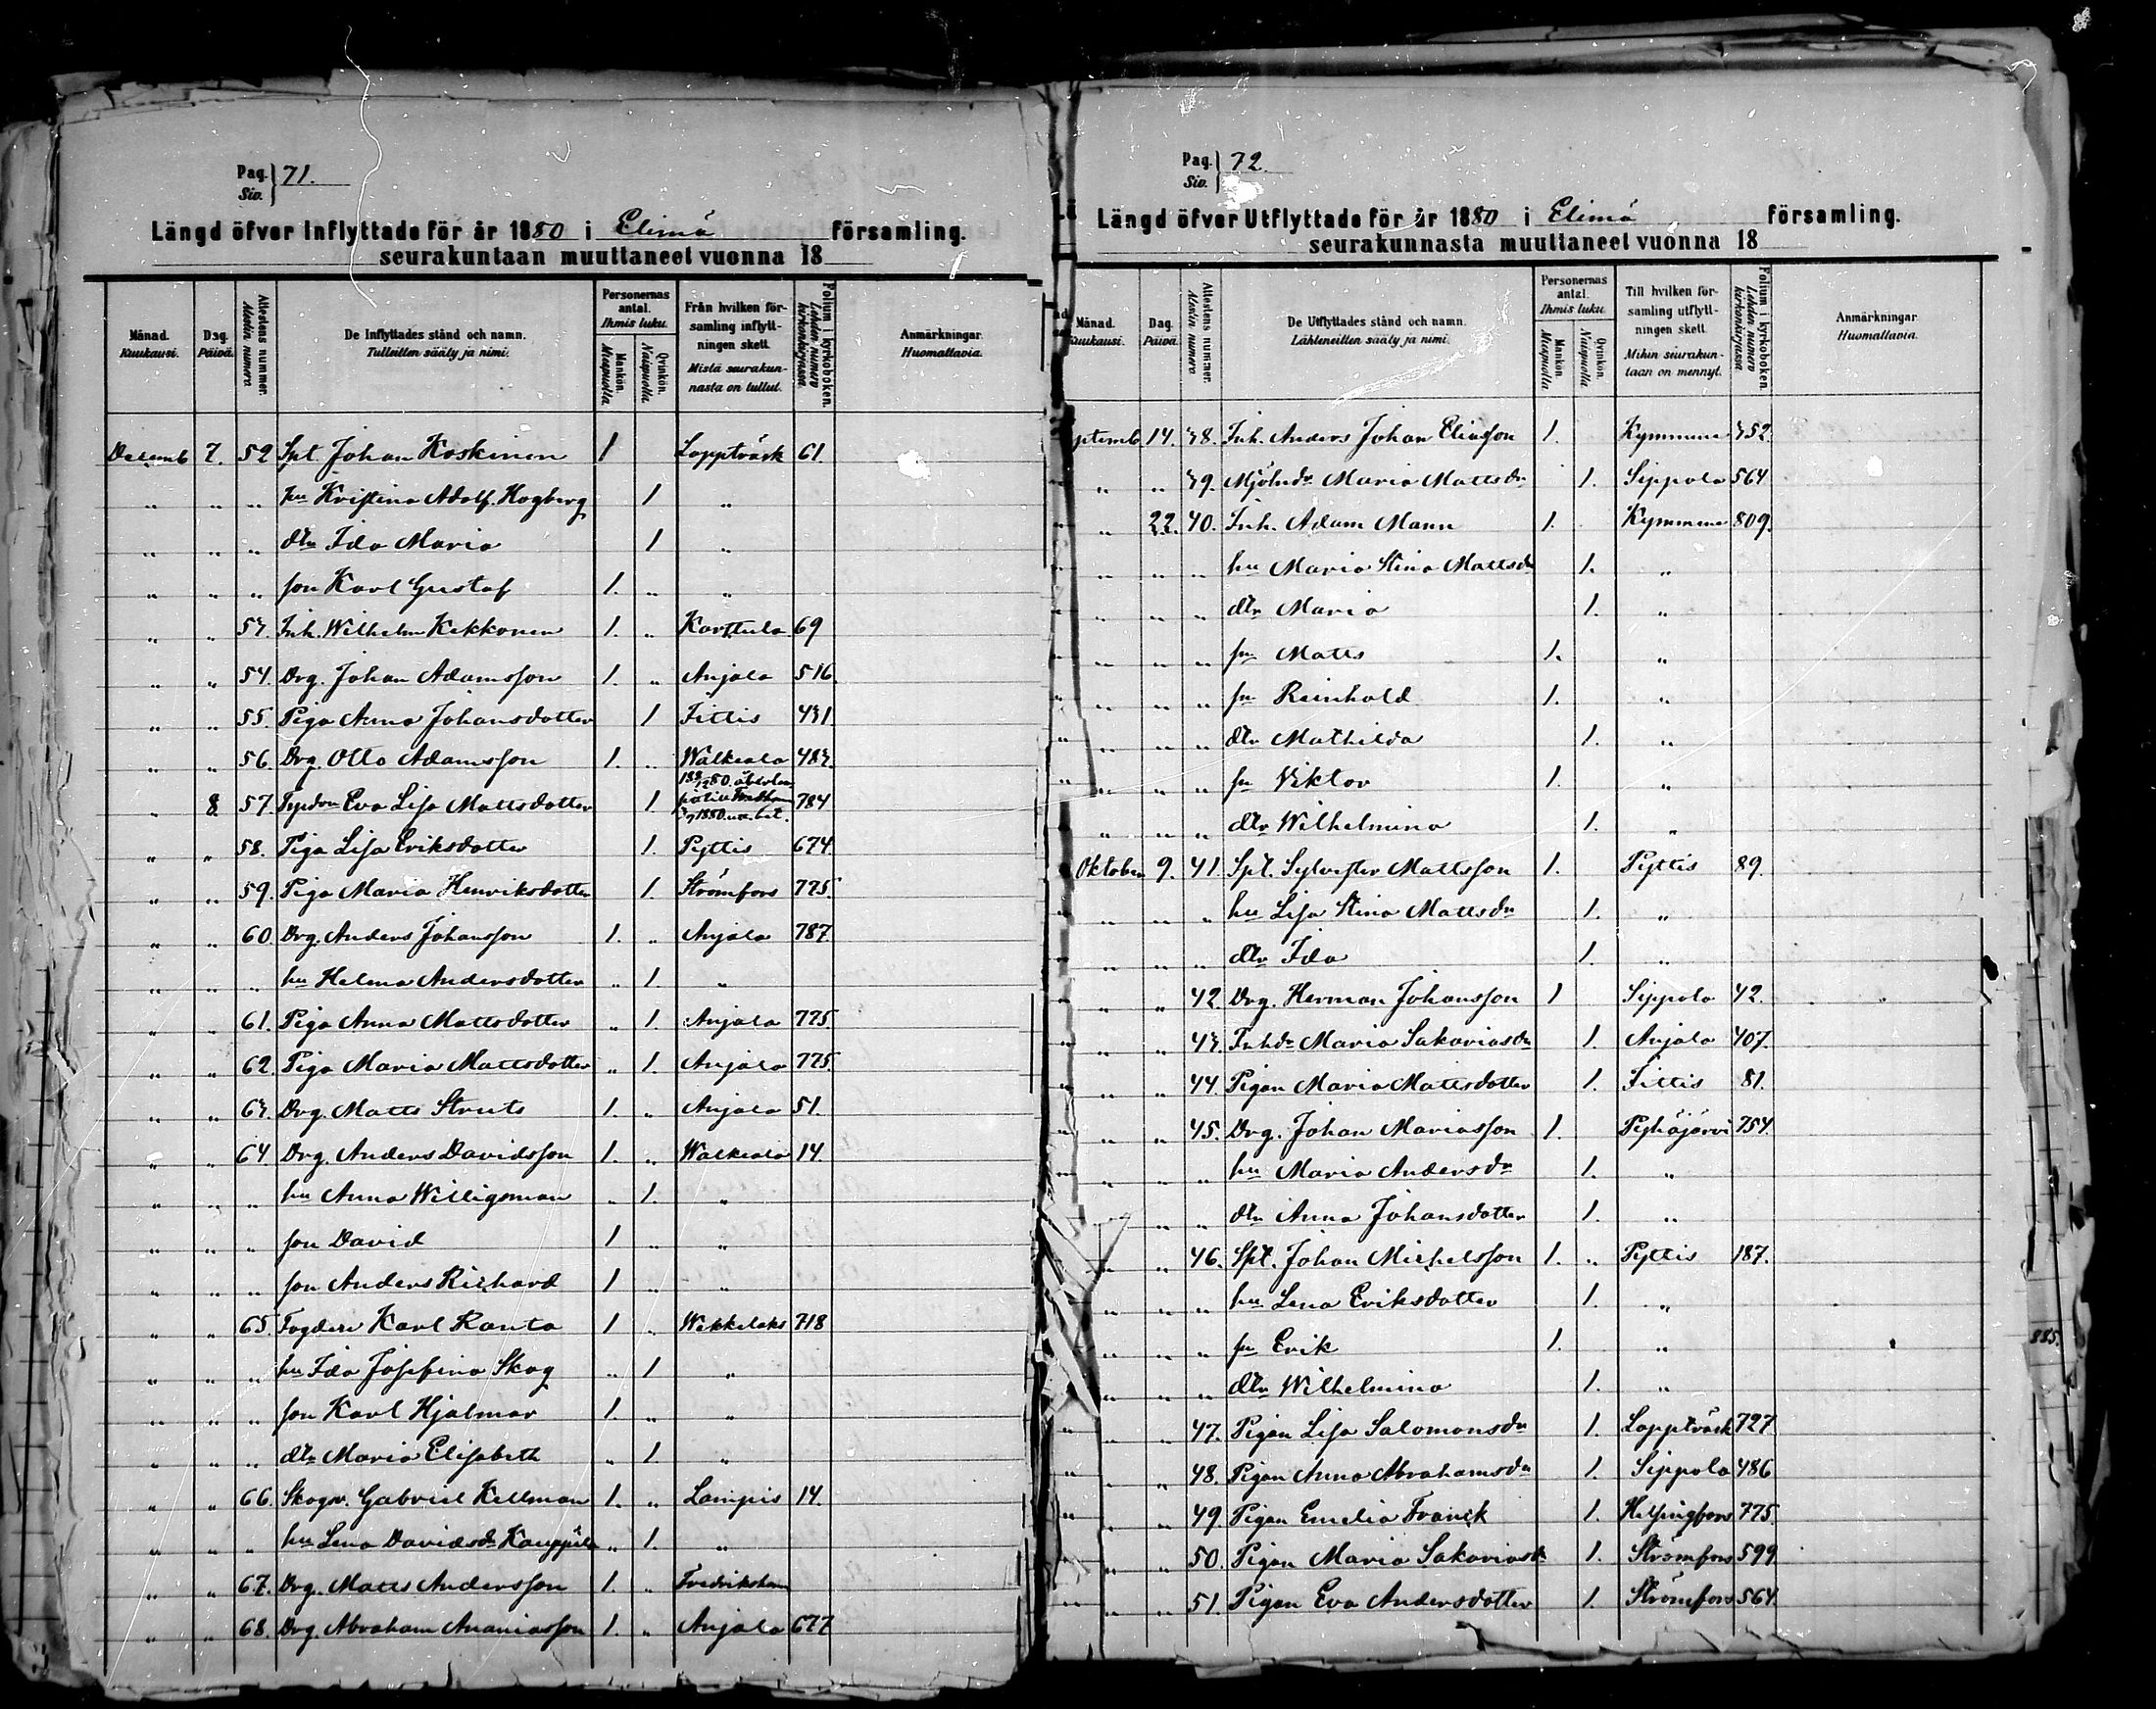 Pag. Siv. } 71.
Längd öfver Inflyttade för år 1880 i Elimä församling.
seurakuntaan muuttaneet vuonna 18
Månad. Kuukausi. | Dag. Päivä. | Attestens nummer. Alestin numero | De Inflyttades stånd och namn. Tulleitten sääty ja nimi. | Personernas antal. Ihmis luku. Mankön. Miespuolta Qvinkön. Naispuolta | Från hvilken församling inflyttningen skett. Mistä seurakunnasta on tullut. | Folium i kyrkoboken. Lehden numero kirkonkirjassa | Anmärkningar. Huomattavia.
Decemb 7. 52 Spt Johan Koskinen 1 Lappträsk 61.
„ „ „ hu Kristina Adolf. Hogberg 1 „
„ „ „ dtr Ida Maria 1 „
„ „ „ son Karl Gustaf 1. „ „
„ „ 53. Inh. Wilhelm Kekkonen 1. „ Karttula 69
„ „ 54. Drg. Johan Adamsson 1. „ Anjala 516.
„ „ 55. Piga Anna Johansdotter 1 Iittis 431
„ „ 56. Drg. Otto Adamsson 1. „ Walkeala 483.
„ 8. 57. Eva Lisa Mattsdotter 1 784
„ „ 58. Piga Lisa Eriksdotter 1. Pyttis 674.
„ „ 59. Piga Maria Henriksdotter 1. Strömfors 775.
„ „ 60 Drg. Anders Johansson 1. „ Anjala 787.
„ „ „ hu Helena Andersdotter „ 1. „
„ „ 61. Piga Anna Mattsdotter „ 1. Anjala 775.
„ „ 62. Piga Maria Mattsdotter „ 1. Anjala 775.
„ „ 63. Drg. Matts Struts 1. „ Anjala 51.
„ „ 64. Drg. Anders Davidsson 1. „ Walkeala 14.
„ „ „ hu Anna Willigsman „ 1. „
„ „ „ son David 1 „ „
„ „ „ son Anders Richard 1 „ „
„ „ 65. Karl Ranta 1 „ Wekkelaks 718
„ „ „ hu Ida Josefina Skog „ 1 „
„ „ „ son Karl Hjalmar 1. „ „
„ „ „ dtr Maria Elisabeth „ 1. „
„ „ 66. Skogv. Gabriel Kellman 1. „ Lampis 14.
„ „ „ hu Lena Davidsdr „ 1. „
„ „ 67. Drg. Matts Andersson 1. „ Fredrikshamn
„ „ 68. Drg. Abraham Ananiasson 1. „ Anjala 677
Pag. Siv. } 72.
Längd öfver Utflyttade för år 1880 i Elimä församling.
seurakunnasta muuttaneet vuonna 18
Månad. Kuukausi. | Dag. Päivä. | Attestens nummer. Alestin numero | De Utflyttades stånd och namn. Lähteneitten sääty ja nimi. | Personernas antal. Ihmis luku. Mankön. Miespuolta Qvinkön. Naispuolta | Till hvilken församling utflyttningen skett. Mihin seurakuntaan on mennyt. | Folium i kyrkoboken. Lehden numero kirkonkirjassa | Anmärkningar. Huomattavia.
ptemb 14. 38. Inh. Anders Johan Eliasson 1. Kymmene 352.
„ „ 39. Mjölndr Maria Mattsdr 1. Sippola 564
„ 22. 40. Inh. Adam Mann 1. Kymmene 809.
„ „ „ hu Maria Stina Mattsdr 1. „
„ „ „ dtr Maria 1. „
„ „ „ sn Matts 1. „
„ „ „ sn Reinhold 1. „
„ „ „ dtr Mathilda 1. „
„ „ „ sn Viktor 1. „
„ „ „ dtr Wilhelmina 1. „
Oktober 9. 41. Spt. Sylvester Mattsson 1. Pyttis 89.
„ „ „ hu Lisa Stina Mattsdr 1. „
„ „ „ dtr Ida 1. „
„ „ 42. Drg. Herman Johansson 1 Sippola 42.
„ „ 43. Inhdr Maria Sakariasdr 1. Anjala 407.
„ „ 44. Pigan Maria Mattsdotter 1. Iittis 81.
„ „ 45. Drg. Johan Mariasson 1. Pyhäjärvi 754.
„ „ „ hu Maria Andersdr 1. „
„ „ „ dtr Anna Johansdotter 1. „
„ „ 46. Spt. Johan Michelsson 1. „ Pyttis 187.
„ „ „ hu Lena Eriksdotter 1. „
„ „ „ sn Erik 1. „
„ „ „ dtr Wilhelmina 1. „
„ „ 47. Pigan Lisa Salomonsdr 1. Lappträsk 727
„ „ 48. Pigan Anna Abrahamsdr 1. Sippola 486
„ „ 49. Pigan Emelia Franck 1. Helsingfors 775.
„ „ 50. Pigan Maria Sakariasdr 1. Strömfors 599
„ „ 51. Pigan Eva Andersdotter 1. Strömfors 564.
885.